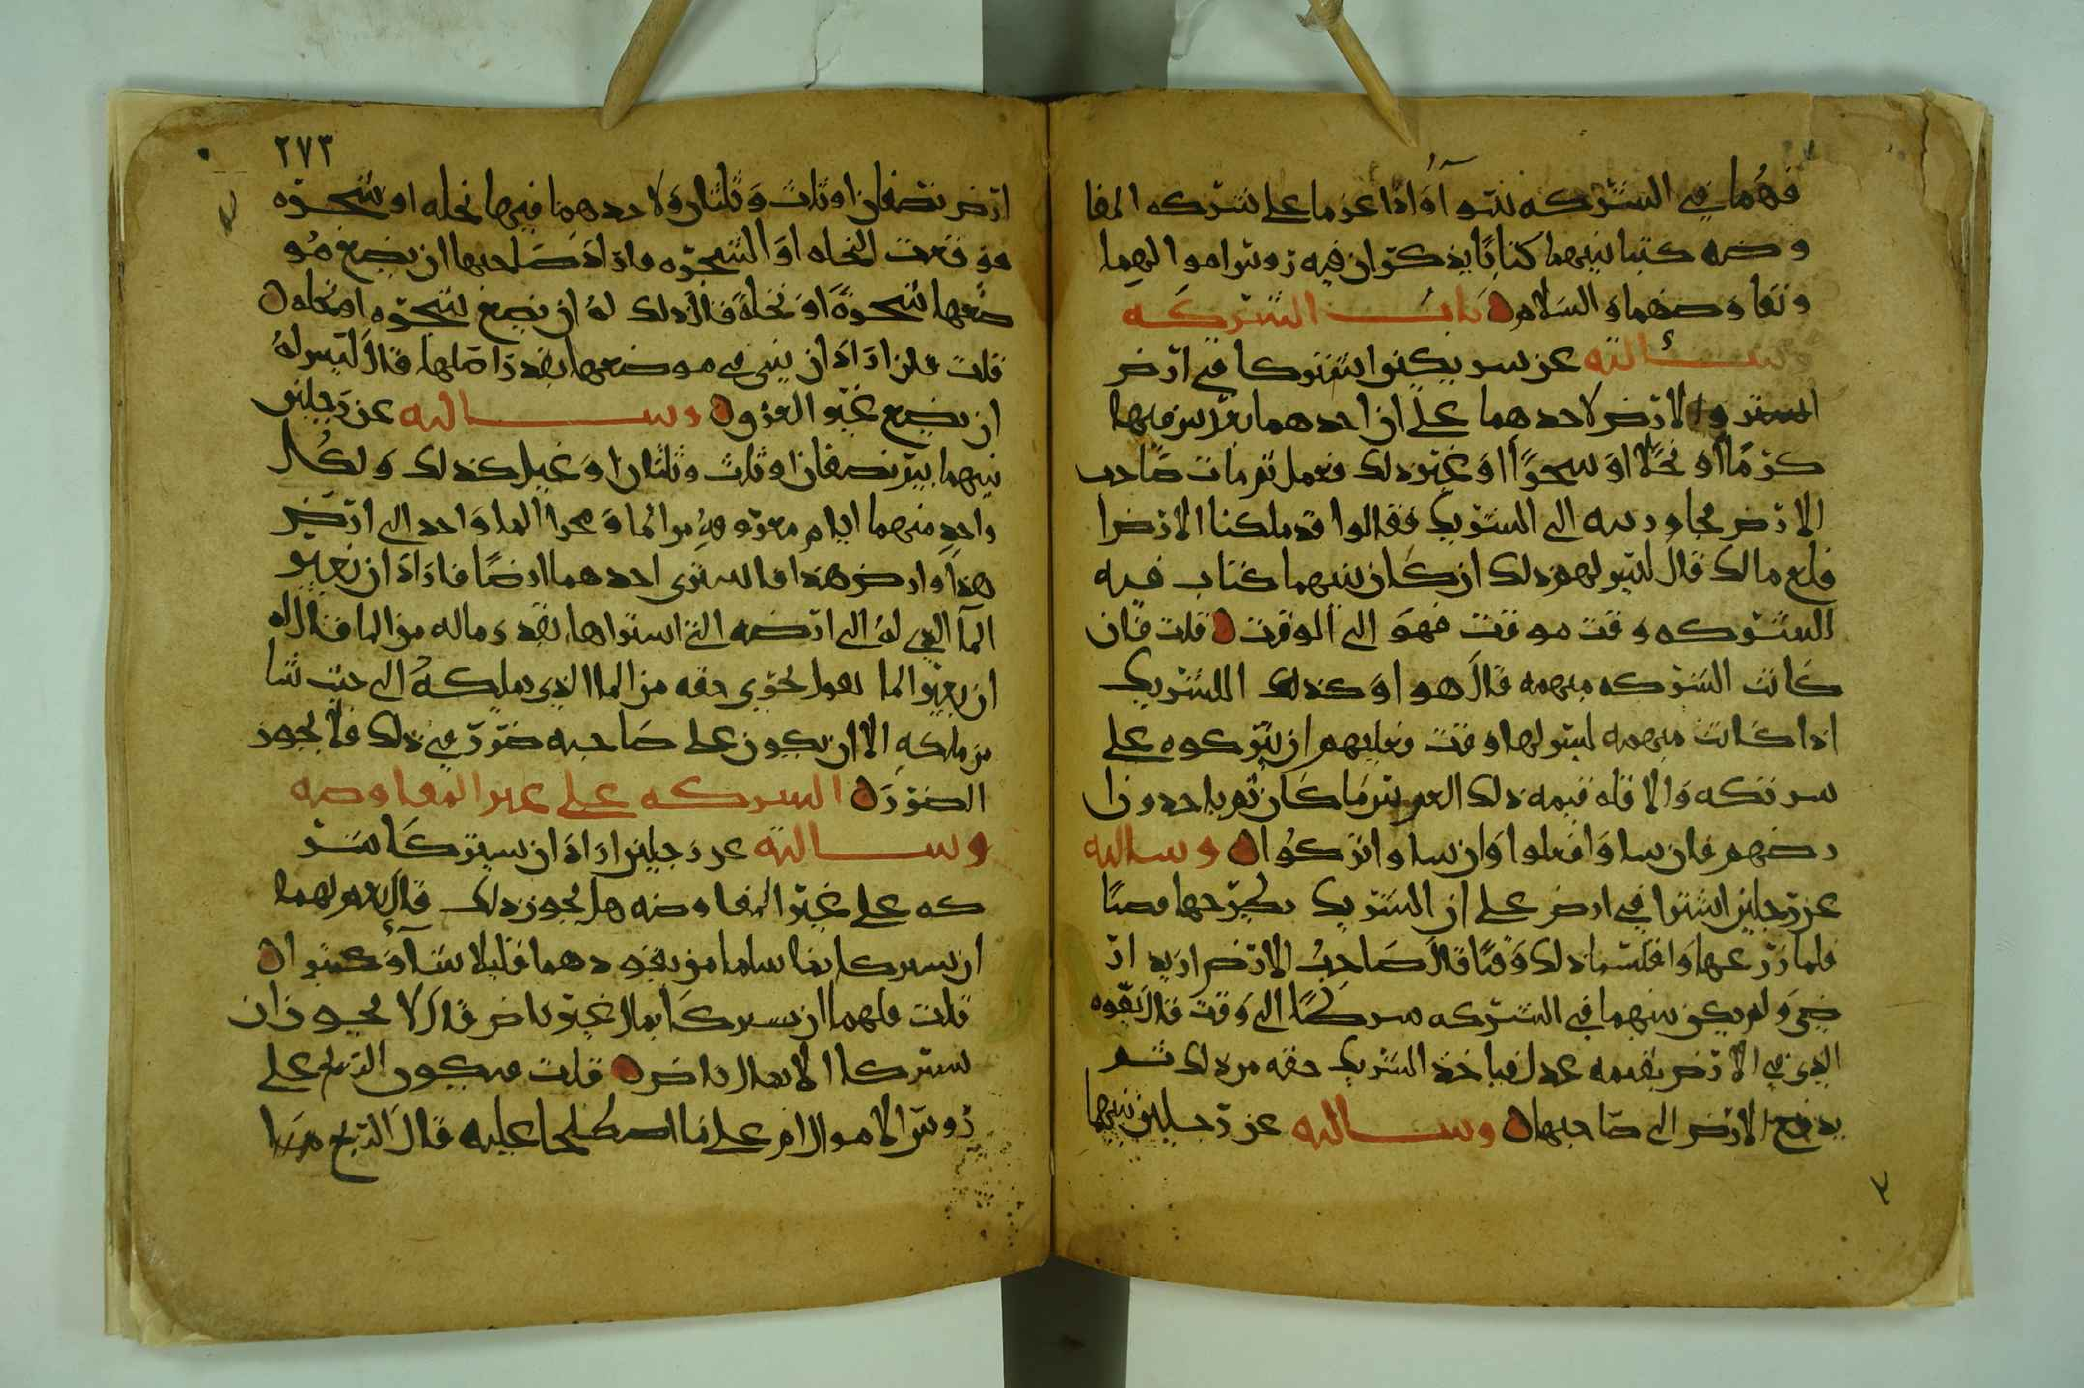 فهما في الشركه سَوآ وَاذا عزما على شركه المفا
وضه كتبا بينهما كتابًا يذكران فيه زوس اموالهما
وتفاوضهما وَالسَلام بَاب الشركَه
وسـألته عن شريكين اشتركا في ارض
الارض لاحدهما على ان احدهما يغرس فيها
كرمًا او نخلًا اوَ شجرًا اوَ غير ذلك فعمل ثم مات صَاحب
الارض فجا ورثته الى الشريك فقالوا قد ملكنا الارض
فاقلع مالك قال ليس لهم ذلك ان كان بينهما كتاب فيه
الشركه وقت موقت فهوَ الى الوقت قلت فان
كَانت الشركه مبهمه قالَ هو اوَ كذلك الشريك
اذا كانت مبهمه ليس لها وقت فعليهم ان يتركوه على
شركته وَالا فله قيمه ذلك الغرس مَا كَان ثم ياخذون ا
رضهم فان شاوَا فعلوا وَان شاوا تركوُا وسالته
عن رجلين اشتركا في ارض على ان الشريك يطرحها قصبًا
فلما زرعها وَاقلتما ذلك وَقتًا قالَ صَاحبُ الارض اريد ار
ضي وَلم يكن بينهما في الشركه شركًا الى وَقت قال يقوم
الذي في الارض بقيمه عدل فياخذ الشريك حقه من ذلك ثم
يدفع الارض الى صَاحبها وسـالته عن رجلين بينهما
٢٧٣
ارض نصفان او ثلث وَثلثان وَلاحدهما فيها نخله او شجره
فوقعت النخله اوَ الشجره فارادَ صَاحبها ان يضع مو
ضعها شجرةً اوَ نخلةً قال ذلك لهُ ان يضع شجره او نخله
قلت فان ارَادَ ان يبني في موضعها بقدر اصَلها قال ليس لهُ
ان يضع غير الغروس وسـالته عن رَجلين
بينهما بير نصفان او ثلث وثلثان اوَ غيل كذلك وَلكُل
واحدٍ منهما ايام معروفهٍ من الما وَمجرا الما وَاحد الى ارض
هذا وارض هذا فاشترى احدهما ارضًا فارَادَ ان يغير
المآ الذي لهُ الى ارضه التي اشتراها بقدر ماله من الما فقال له
ان يغير الما لحوي حقه من الما الذي يملكهُ الى حيث شا
من ملكهِ الا ان يكون على صَاحبه ضررٌ في ذلك فلا يجوز
الضررَ الشركه على غير المفاوضه
وسـالته عن رجلين ارادَ ان يشتركَا شر
كه على غير المفاوضه هل يجوز ذلك قالَ نعم لهما
ان يشتركا بما شاا من نقودهما قليلا شآ اوَ كثيرا
قلت فلهما ان يشتركَا بمال غير ناض قالَ لا يجوز ان
يشتركا الا بمال ناض قلت فيكون الربح على
زوس الاموال ام على مَا اصطلحا عليه قال الربح